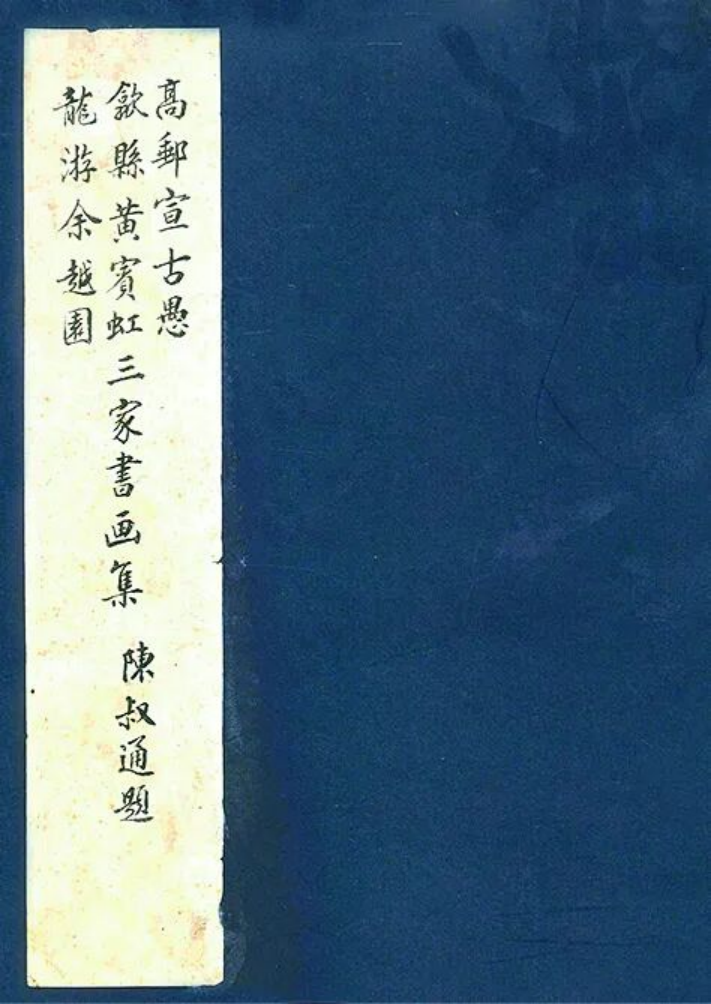 高郵宣古愚
歙縣黃賓虹三家書画集
龍游余越園
陳叔通題